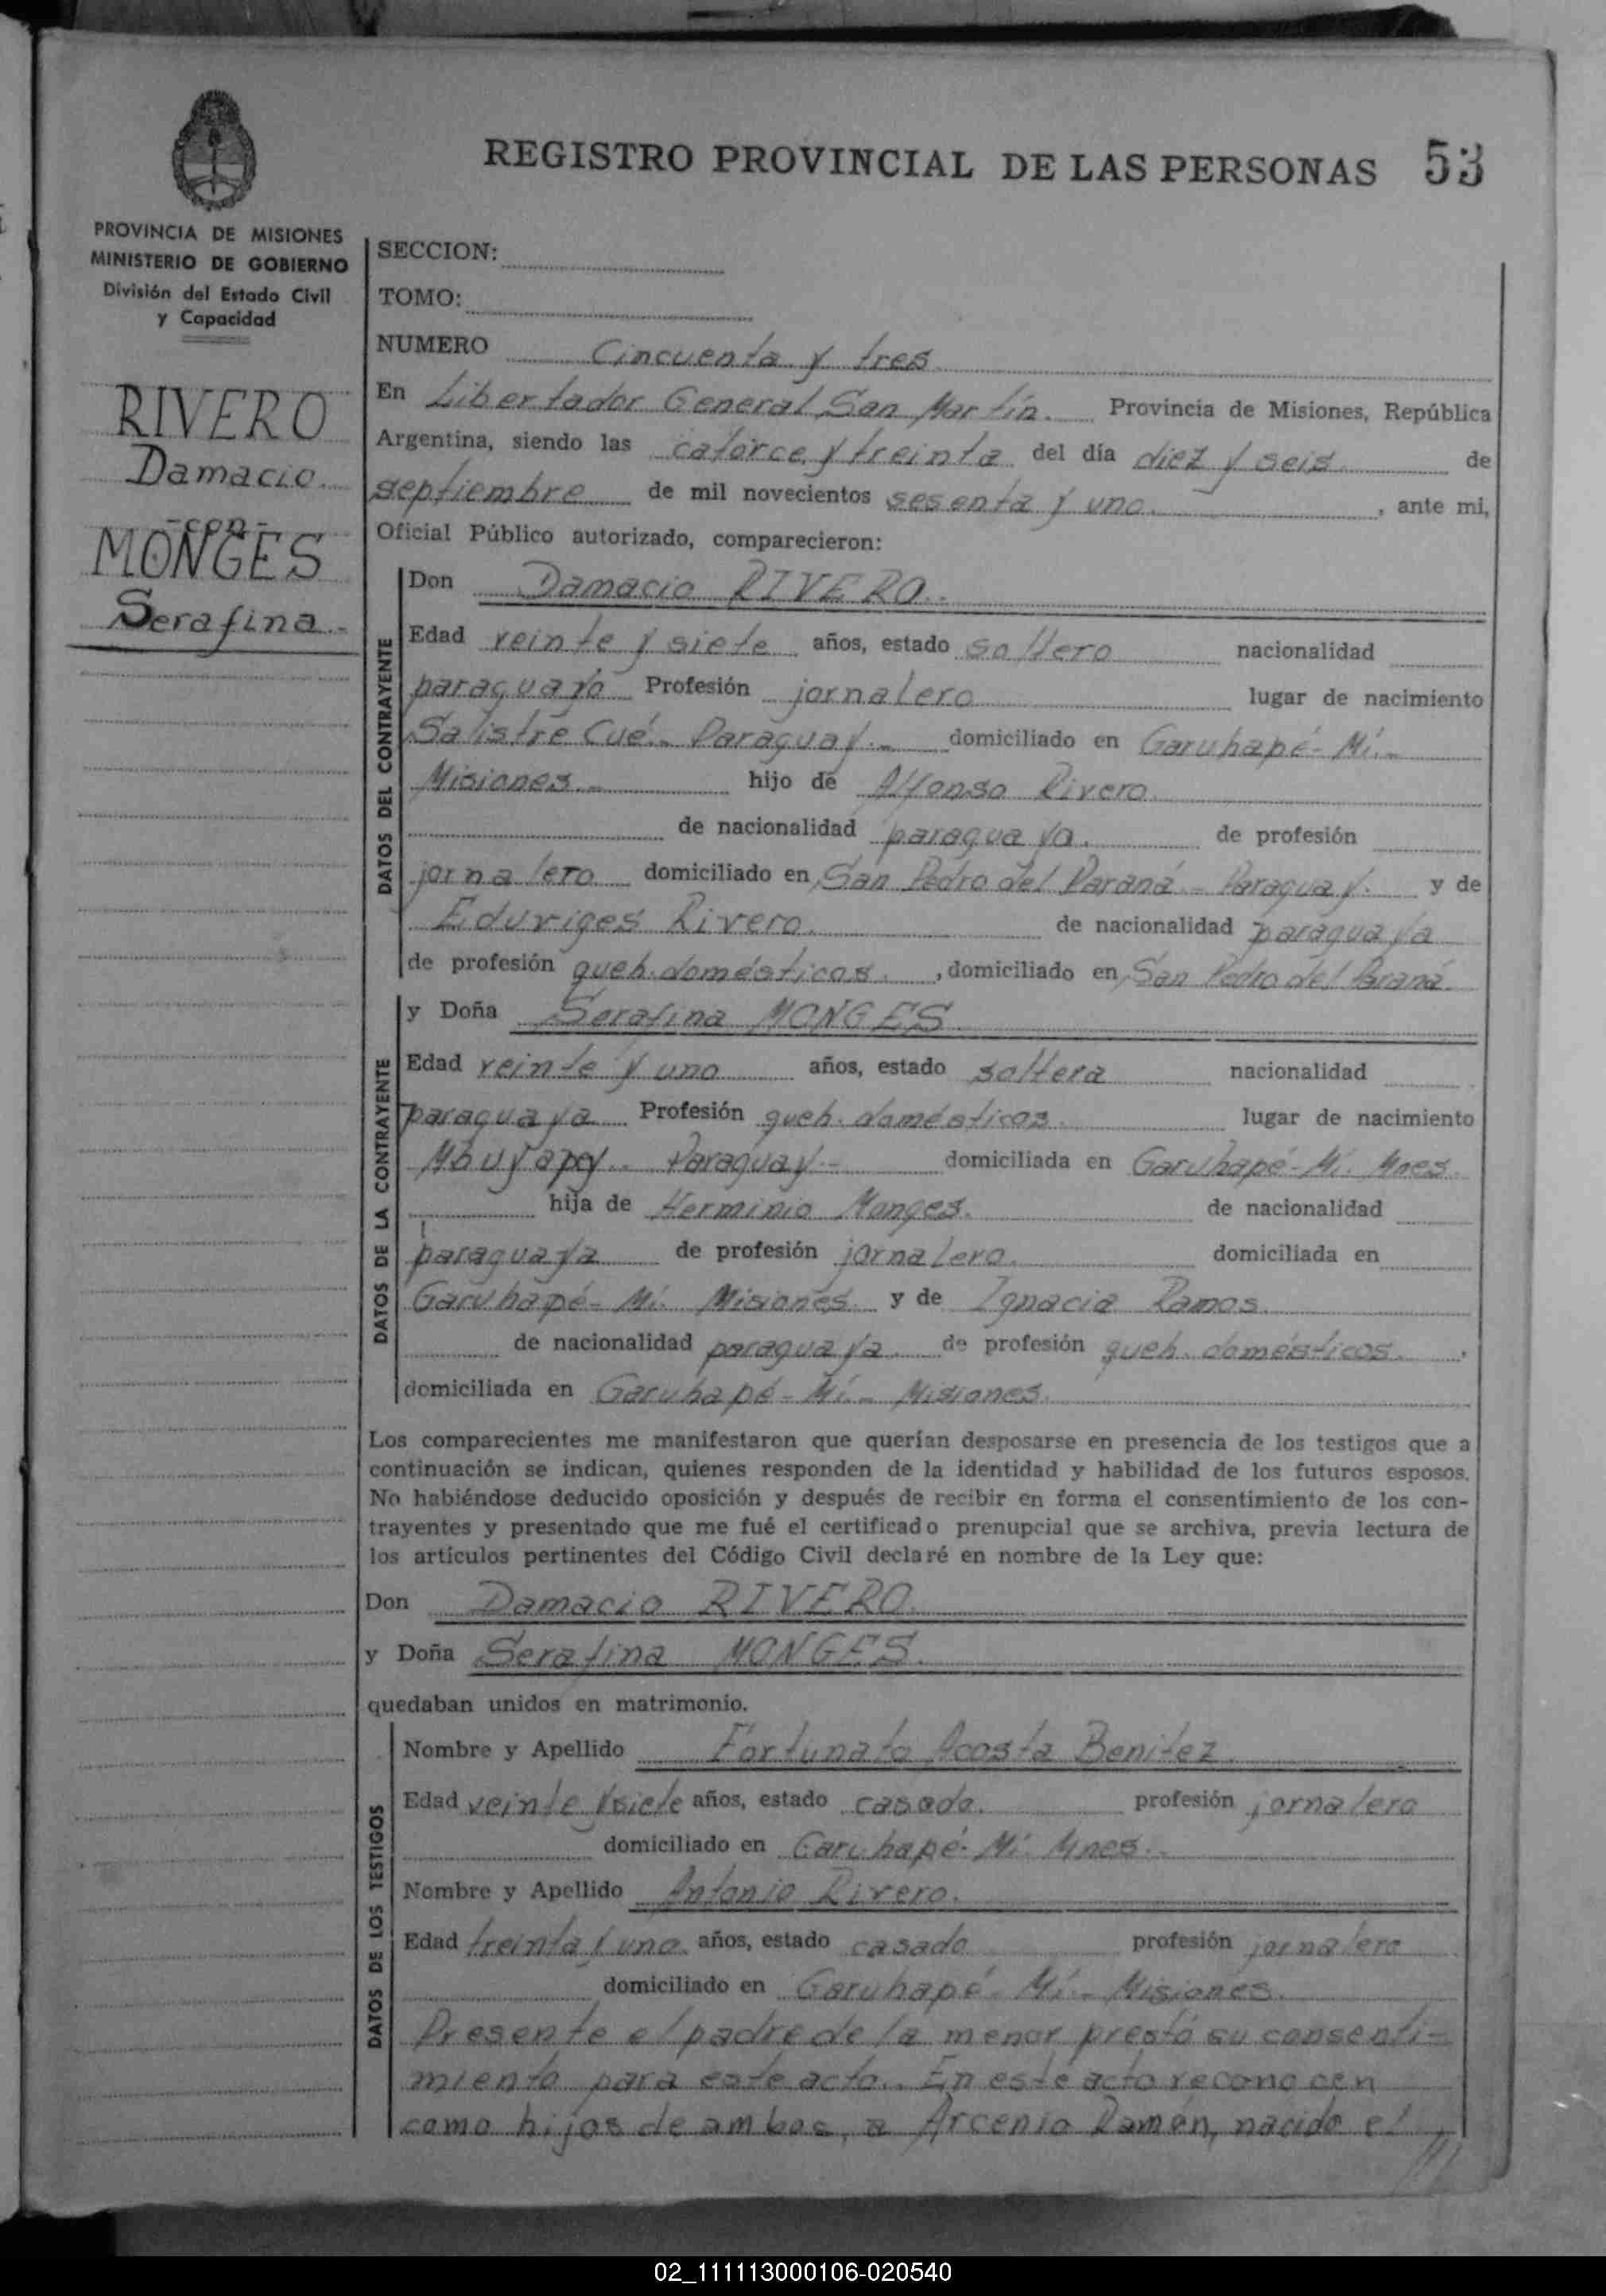 REGISTRO PROVINCIAL DE LAS PERSONAS 53
PROVINCIA DE MISIONES
MINISTERIO DE GOBIERNO
División del Estado Civil
y Capacidad
RIVERO
Damacio.
-con-
MONGES
Serafina.-
SECCION:
TOMO:
NUMERO Cincuenta y tres
En Libertador General San Martín. Provincia de Misiones, República
Argentina, siendo las catorce y treinta del día diez y seis de
septiembre de mil novecientos sesenta y uno. , ante mi,
Oficial Público autorizado, comparecieron:
DATOS DEL CONTRAYENTE
Don Damacio RIVERO.
Edad veinte y siete años, estado soltero nacionalidad
paraguayo Profesión jornalero lugar de nacimiento
Salistre Cué.- Paraguay.- domiciliado en Garuhapé-Mí.-
Misiones.- hijo de Alfonso Rivero.
de nacionalidad paraguaya. de profesión
jornalero domiciliado en San Pedro del Paraná - Paraguay. y de
Eduviges Rivero. de nacionalidad paraguaya
de profesión queh. domésticos. , domiciliado en San Pedro del Paraná.
DATOS DE LA CONTRAYENTE
y Doña Serafina MONGES
Edad veinte y uno años, estado soltera nacionalidad
paraguaya Profesión queh. domésticos. lugar de nacimiento
Paraguay.- domiciliada en Garuhapé-Mí. Mnes.
hija de Herminio Monges. de nacionalidad
paraguaya de profesión jornalero. domiciliada en
Garuhapé-Mí. Misiones y de Ignacia Ramos.
de nacionalidad paraguaya. de profesión queh. domésticos. ,
domiciliada en Garuhapé-Mí.- Misiones.
Los comparecientes me manifestaron que querían desposarse en presencia de los testigos que a
continuación se indican, quienes responden de la identidad y habilidad de los futuros esposos.
No habiéndose deducido oposición y después de recibir en forma el consentimiento de los con-
trayentes y presentado que me fué el certificado prenupcial que se archiva, previa lectura de
los artículos pertinentes del Código Civil declaré en nombre de la Ley que:
Don Damacio RIVERO.
y Doña Serafina MONGES.
quedaban unidos en matrimonio.
DATOS DE LOS TESTIGOS
Nombre y Apellido Fortunato Acosta Benitez.
Edad veinte y siete años, estado casado. profesión jornalero
domiciliado en Garuhapé-Mí Mnes.
Nombre y Apellido Antonio Rivero.
Edad treinta y uno años, estado casado profesión jornalero
domiciliado en Garuhapé-Mí.- Misiones.
Presente el padre de la menor prestó su consenti-
miento para este acto. En este acto reconocen
como hijos de ambos, a Arcenio Ramón, nacido el
02_111113000106-020540